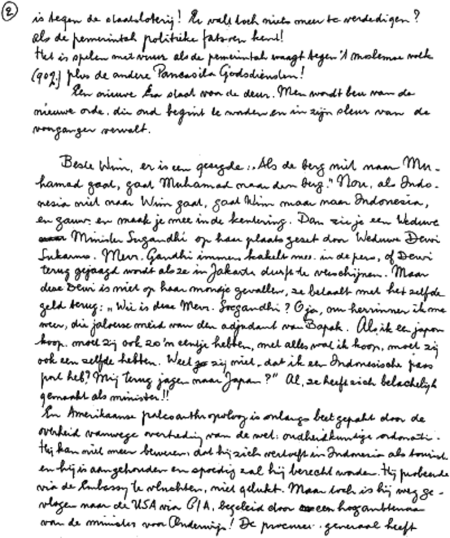 2
is tegen de staatsloterij! Er valt toch niets meer te verdedigen?
als de pemerintah politieke fatsoen heeft!
Het is spelen met vuur als de pemerintah waagt tegen 't moslemse volk
(90%) plus de andere Pancasila Godsdiensten!
Een nieuwe era staat voor de deur. Men wordt beu van de
nieuwe orde, die oud begint te worden en in zijn sleur van de
voorganger vervalt.
Beste Wim, er is een gezegde: "Als de berg niet naar Mu-
hamad gaat, gaat Muhamad naar den berg." Nou, als Indo-
nesia niet naar Wim gaat, gaat Wim maar naar Indonesia,
en gauw en maak je mee in de kentering. Dan zie je een Weduwe
Minister Sugandhi op haar plaats gezet door Weduwe Dewi
Sukarno. Mevr. Gandhi immers kakelt mee in de pers, of Dewi
terug gejaagd wordt als ze in Jakarta durft te verschijnen. Maar
deze Dewi is niet op haar mondje gevallen, ze betaalt met hetzelfde
geld terug: "Wie is deze Mevr. Soegandhi? O ja, nu herinner ik me
weer, die jaloerse meid van den adjudant van Bapak. Als ik een japon
koop, moet zij ook zo'n eentje hebben, met alles wat ik koop, moet zij
ook eenzelfde hebben. Weet zij niet, dat ik een Indonesische pas
port heb? Mij terug jagen naar Japan?" Al, ze heeft zich belachelijk
gemaakt als minister!!
En Amerikaanse paleoanthropoloog is onlangs beet gepakt door de
overheid vanwege overtreding van de wet: oudheidkundige ordonnatie.
Hij kan niet meer beweren, dat hij zich vertoeft in Indonesia als tourist
en hij is aangehouden en spoedig zal hij berecht worden. Hij probeerde
via de Embassy te vluchten, niet gelukt. Maar toch is hij wegge-
vlogen naar de USA via CIA, begeleid door een hoogambtenaar
van de minister voor Onderwijs! De procureur-generaal heeft